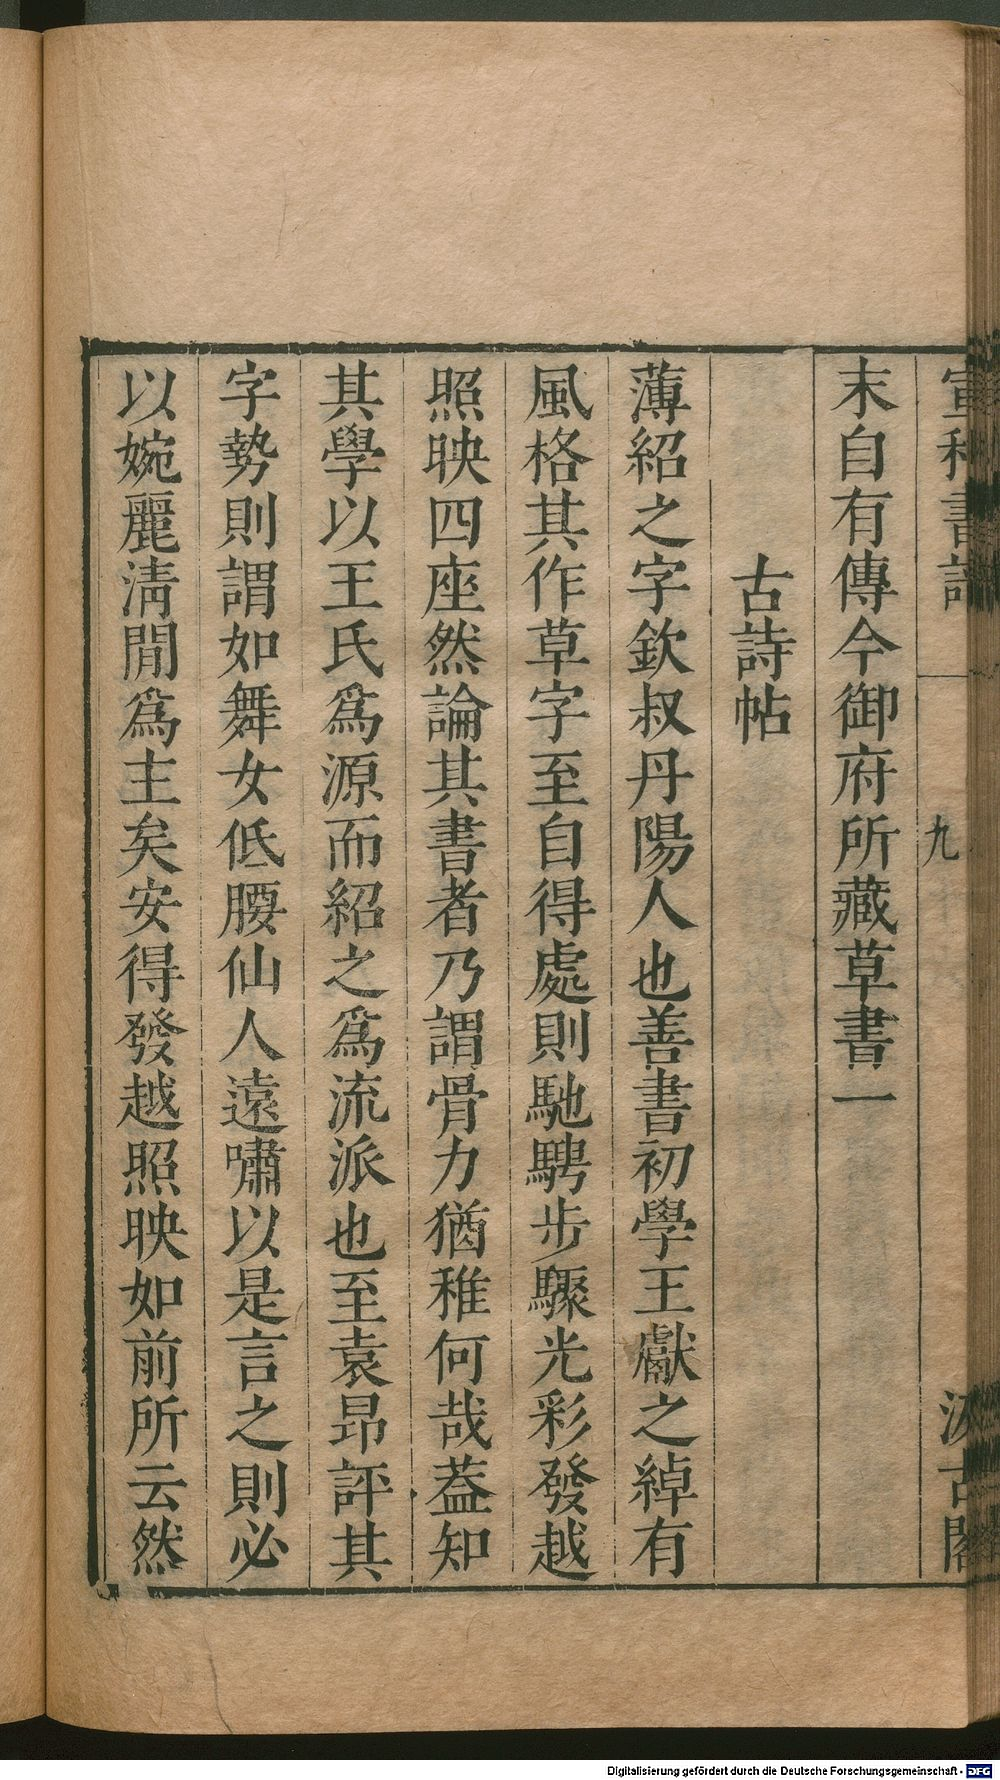 宣和書譜　九　汲古閣
末自有傳今御府所藏草書一
古詩帖
薄紹之字欽叔丹陽人也善書初學王獻之綽有
風格其作草字至自得處則馳騁步驟光彩發越
照映四座然論其書者乃謂骨力猶稚何哉葢知
其學以王氏爲源而紹之爲流派也至袁昂評其
字勢則謂如舞女低腰仙人遠嘯以是言之則必
以婉麗淸閒爲主矣安得發越照映如前所云然
Digitalisierung gefördert durch die Deutsche Forschungsgemeinschaft - DFG